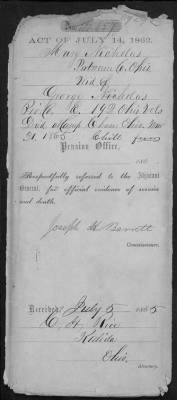 ACT OF JULY 14, 1862.
Mary Nicholas
Putnam Co. Ohio
Wid of
George Nicholas
Co. K. 192 Ohio Vols
Died at Camp Ohio
21. 1865
Pension Office,
186
Respectfully referred to the Adjutant
General, for official evidence of service
and death.
Joseph H Barrett
Commissioner.
Received July 5 1865
C. H. Rice
Kalida
Ohio.
Attorney.